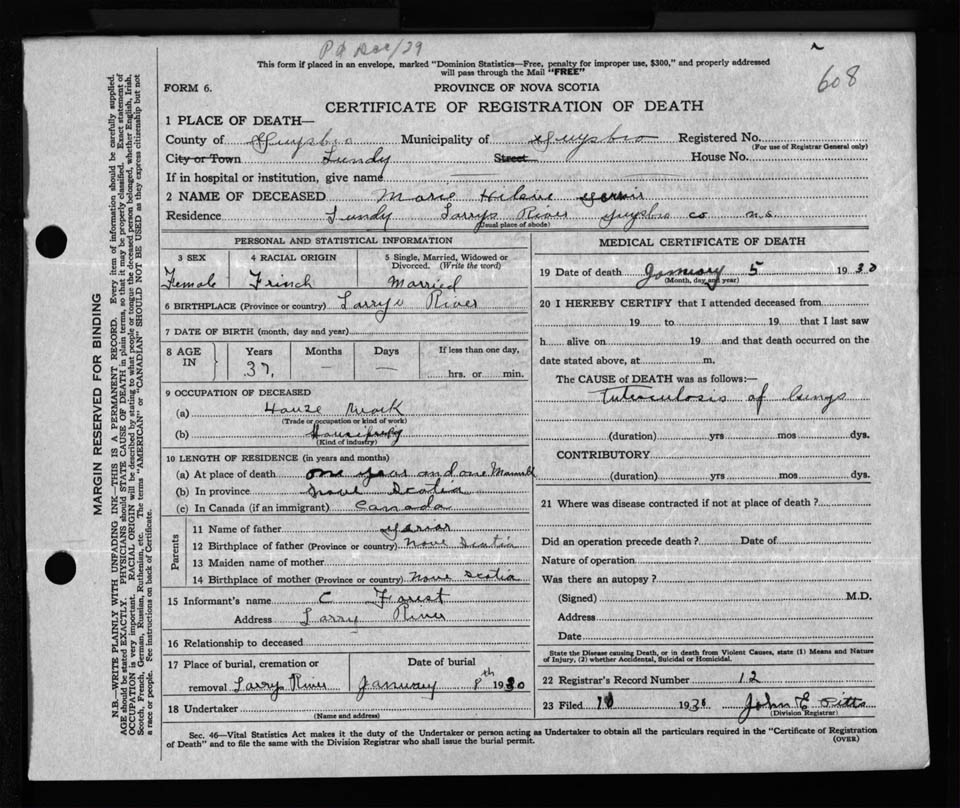 P.A Dec/29
608
This form if placed in an envelope, marked "Dominion Statistics—Free, penalty for improper use, $300," and properly addressed
will pass through the Mail "FREE"
FORM 6.
PROVINCE OF NOVA SCOTIA
CERTIFICATE OF REGISTRATION OF DEATH
1 PLACE OF DEATH—
County of Guysbro Municipality of Guysbro Registered No.
(For use of Registrar General only)
City or Town Lundy Street House No.
If in hospital or institution, give name
2 NAME OF DECEASED Marie
Residence Lundy Larrys River Guysbro co N.S.
(Usual place of abode)
PERSONAL AND STATISTICAL INFORMATION
3 SEX 4 RACIAL ORIGIN 5 Single, Married, Widowed or
Divorced. (Write the word)
Female Frinch Married
6 BIRTHPLACE (Province or country) Larrys River
7 DATE OF BIRTH (month, day and year)
8 AGE IN Years Months Days If less than one day,
37. — — hrs. or min.
9 OCCUPATION OF DECEASED
(a) House Work
(Trade or occupation or kind of work)
(b)
(Kind of industry)
10 LENGTH OF RESIDENCE (in years and months)
(a) At place of death one year and one
(b) In province Nove Scotia
(c) In Canada (if an immigrant) Canada
Parents
11 Name of father
12 Birthplace of father (Province or country) Nove Scotia
13 Maiden name of mother
14 Birthplace of mother (Province or country) Nove Scotia
15 Informant's name C Forest
Address Larry River
16 Relationship to deceased
17 Place of burial, cremation or Date of burial
removal Larrys River January 8th 1930
18 Undertaker
(Name and address)
MEDICAL CERTIFICATE OF DEATH
19 Date of death January 5 1930
(Month, day and year)
20 I HEREBY CERTIFY that I attended deceased from
19 to 19 that I last saw
h alive on 19 and that death occurred on the
date stated above, at m.
The CAUSE of DEATH was as follows:—
Tuberculosis of lungs
(duration) yrs mos dys.
CONTRIBUTORY
(duration) yrs mos dys.
21 Where was disease contracted if not at place of death?
Did an operation precede death? Date of
Nature of operation
Was there an autopsy?
(Signed) M.D.
Address
Date
State the Disease causing Death, or in death from Violent Causes, state (1) Means and Nature
of Injury, (2) whether Accidental, Suicidal or Homicidal.
22 Registrar's Record Number 12
23 Filed 10 193 John E Pitts
(Division Registrar)
Sec. 46—Vital Statistics Act makes it the duty of the Undertaker or person acting as Undertaker to obtain all the particulars required in the "Certificate of Registration
of Death" and to file the same with the Division Registrar who shall issue the burial permit.
(OVER)
MARGIN RESERVED FOR BINDING
N.B.—WRITE PLAINLY WITH UNFADING INK—THIS IS A PERMANENT RECORD. Every item of information should be carefully supplied.
AGE should be stated EXACTLY. PHYSICIANS should STATE CAUSE OF DEATH in plain terms, so that it may be properly classified. Exact statement of
OCCUPATION is very important. RACIAL ORIGIN will be described by stating to what people or tongue the deceased person belonged, whether English, Irish,
Scotch, French, German, Russian, Ruthenian, etc. The terms "AMERICAN" or "CANADIAN" SHOULD NOT BE USED as they express citizenship but not
a race or people. See instructions on back of Certificate.